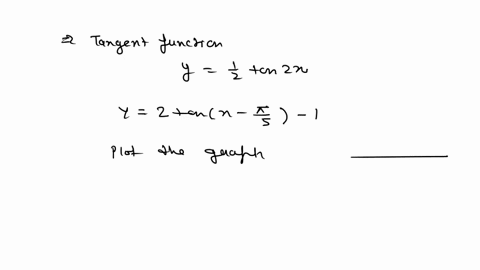 ⇒ Tangent function
y = 1/2 tan 2x
y = 2 tan(x - π/5) - 1
Plot the graph